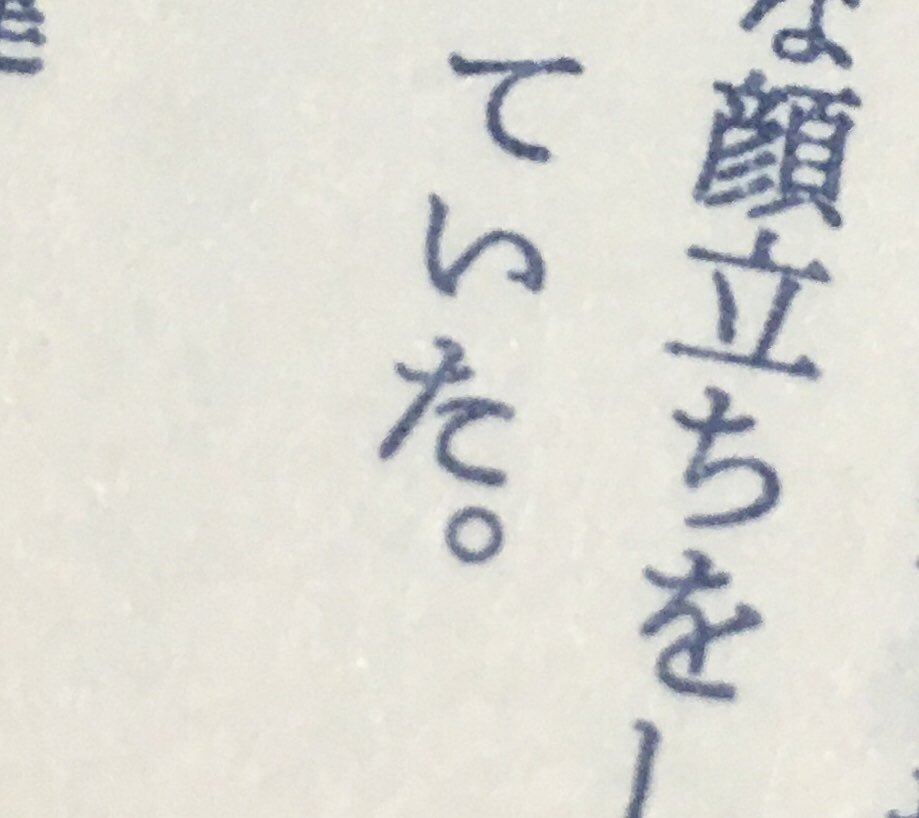 な顔立ちを
ていた。